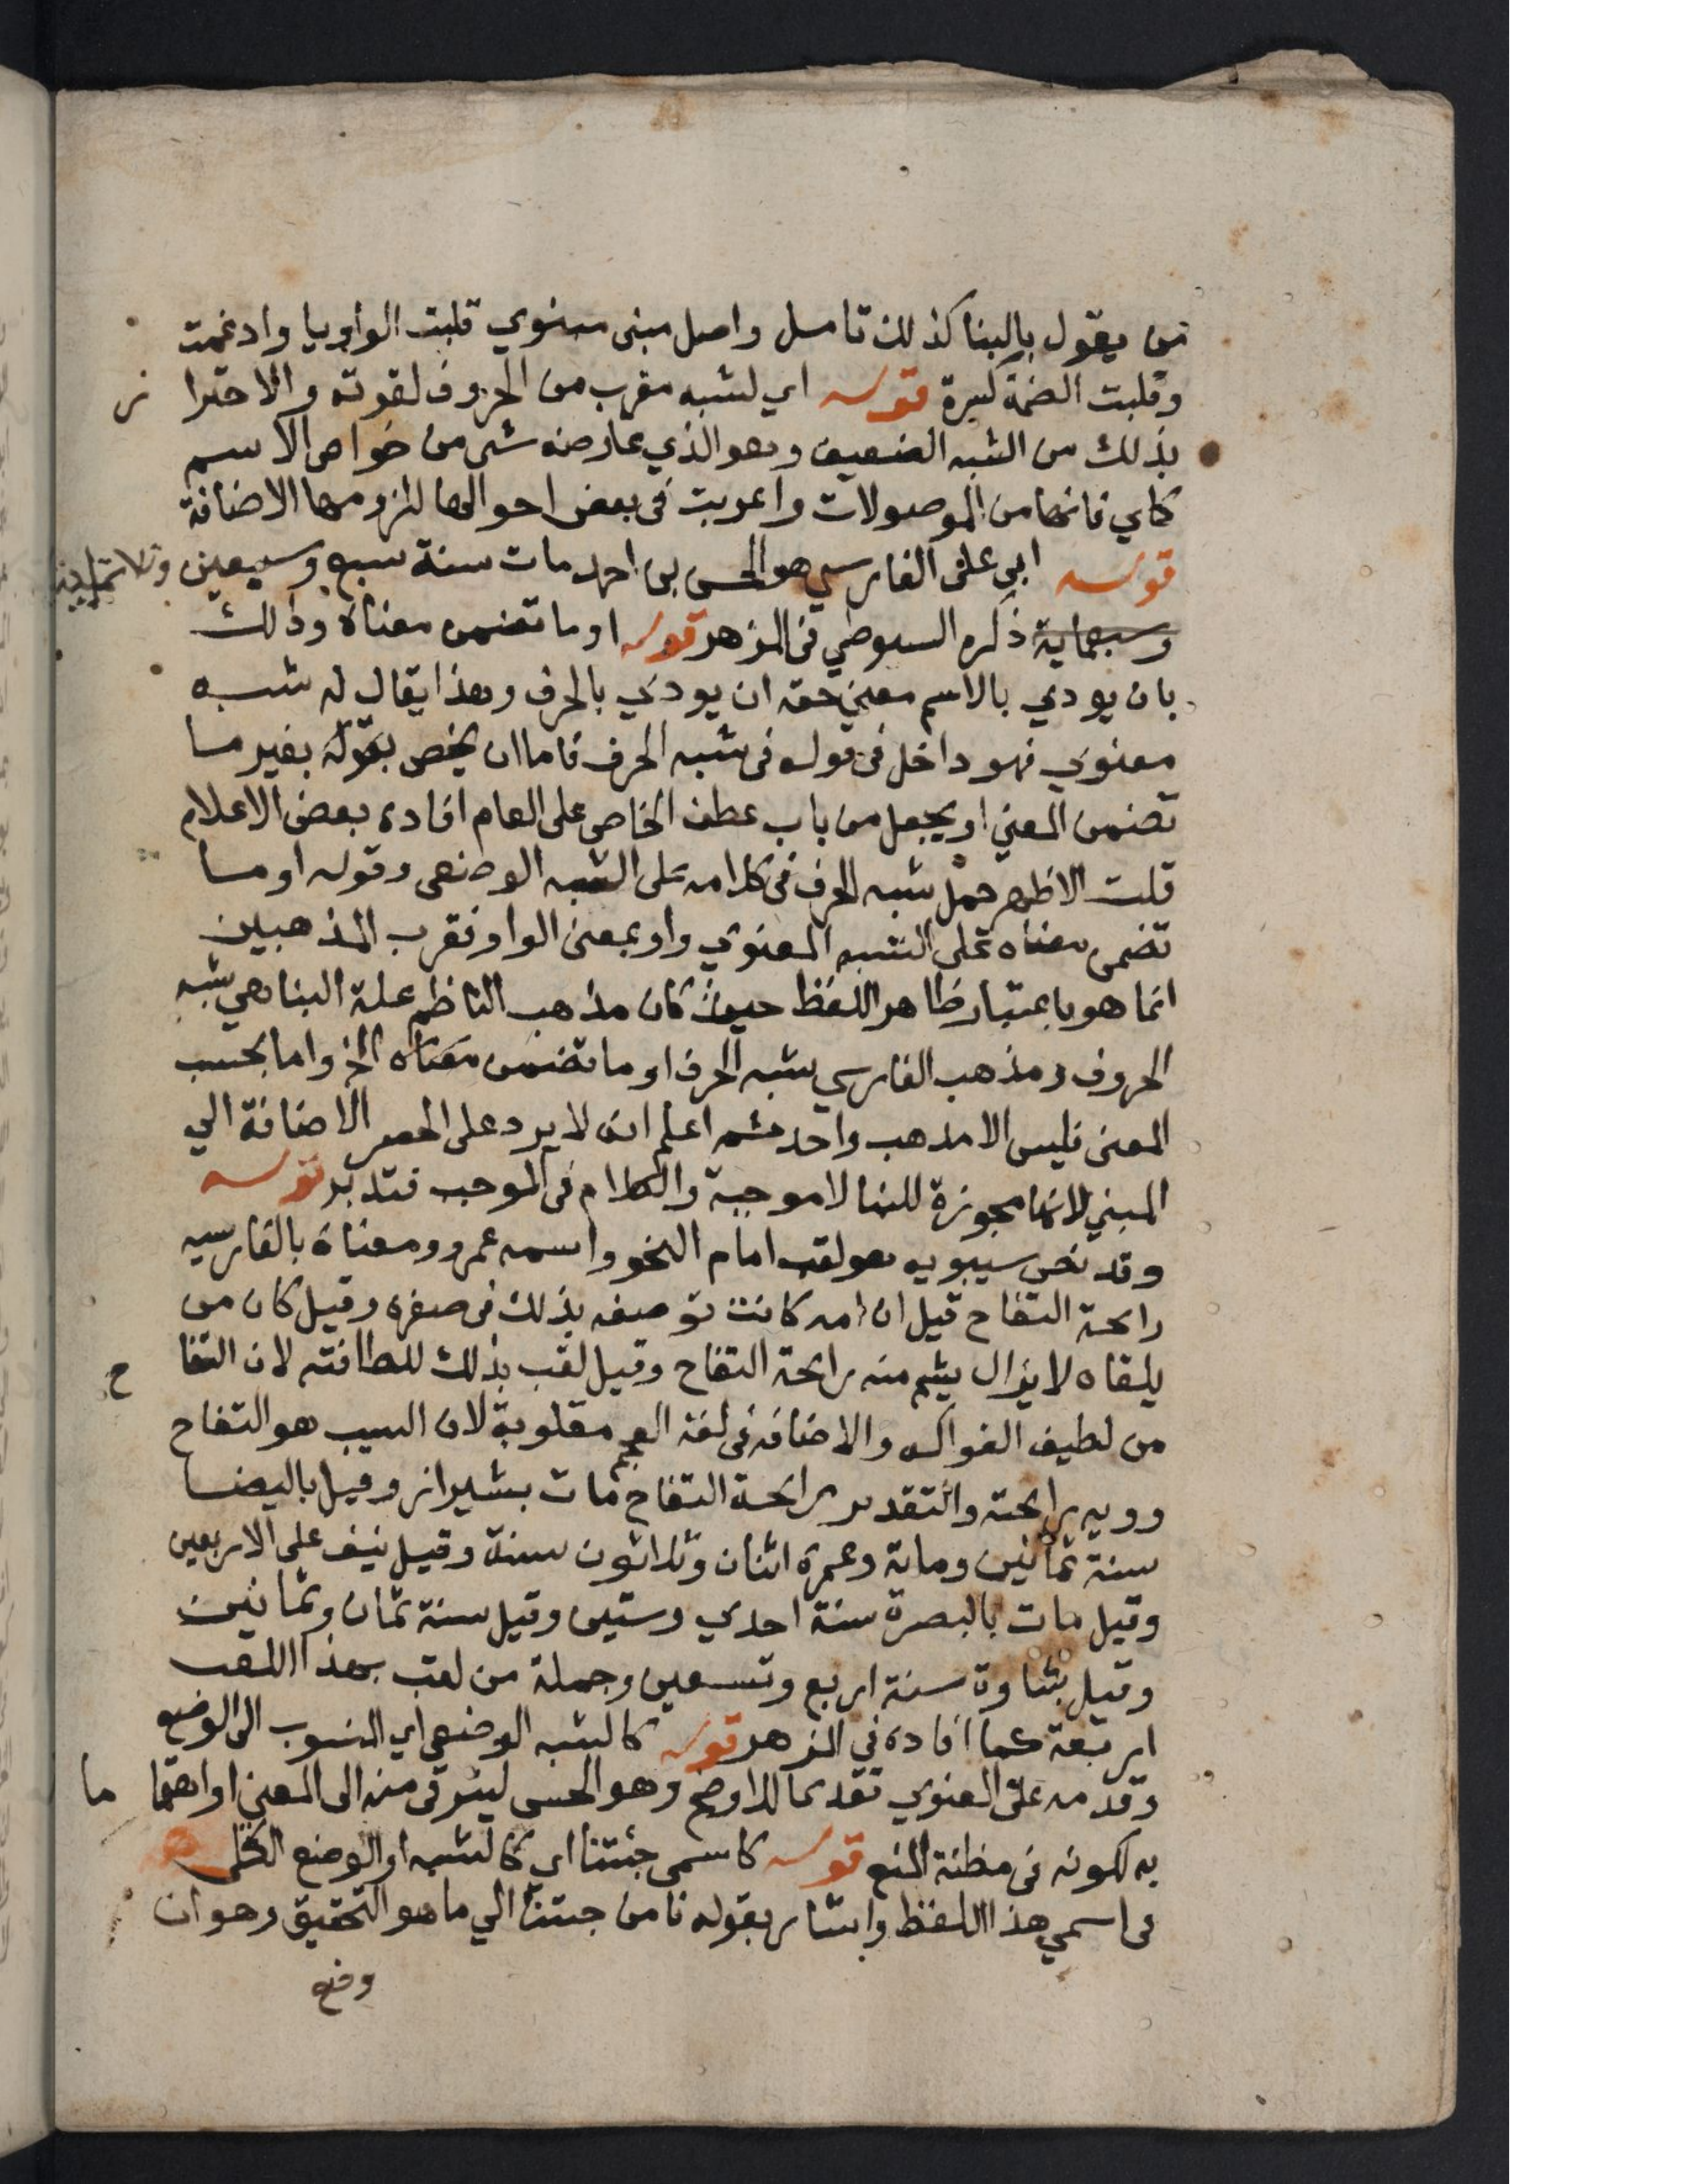 من يقول بالبنا كذلك تامل واصل مبنى مبنوي قلبت الواو يا وادغمت
وقلبت الضمة كسرة قوله اي لشبه مقرب من الحروف لقوته والاحترا ز
بذلك من الشبه الضعيف وهو الذي عارضه شي من خواص الاسم
كاي فانها من الموصولات واعربت في بعض احوالها للزومها الاضافة
قوله ابي علي الفارسي هو الحسن بن احمد مات سنة سبع وسبعين وثلاثماية
وسبعماية ذكره السيوطي في المزهر قوله او ما تضمن معناه وذلك
بان يودي بالاسم معني حقه ان يودي بالحرف وهذا يقال له شبه
معنوي فهو داخل في قوله في شبه الحرف فاما ان يخص بقوله بغير ما
تضمن المعني او يجعل من باب عطف الخاص على العام افاده بعض الاعلام
قلت الاظهر حمل شبه الحرف في كلامه على الشبه الوضعي وقوله او ما
تضمن معناه على الشبه المعنوي واو بمعنى الواو فقرب المذهبين
انما هو باعتبار ظاهر اللفظ حيث كان مذهب الناظم علة البنا هي شبه
الحروف ومذهب الفارسي شبه الحرف او ما تضمن معناه الخ واما بحسب
المعنى فليس الا مذهب واحد ثم اعلم انه لا يرد على الحصر الاضافة الي
المبني لانها مجوزة للبنا لا موجبة والكلام في الموجب فتدبر قوله
وقد نص سيبويه هو لقب امام النحو واسمه عمرو ومعناه بالفارسيه
رايحة التفاح قيل ان امه كانت توصفه بذلك في صغره وقيل كان من
يلقاه لا يزال يشم منه رايحة التفاح وقيل لقب بذلك للطافته لان التفا ح
من لطيف الفواكه والاضافة في لغة العجم مقلوبة لان السيب هو التفاح
وويه رايحته والتقدير رايحة التفاح مات بشيراز وقيل بالبيضا
سنة ثمانين وماية وعمره اثنان وثلاثون سنة وقيل نيف على الاربعين
وقيل مات بالبصرة سنة احدي وستين وقيل سنة ثمان وثمانين
وقيل بشاوة سنة اربع وتسعين وجملة من لقب بهذا اللقب
اربعة كما افاده في المزهر قوله كالشبه الوضعي اي المنسوب الى الوضع
وقدمه على المعنوي تقديما للاوضح وهو الحسي ليترقى منه الى المعني او اهتما ما
به لكونه في مظنة المنع قوله كاسمي جئتنا اي كالشبه او الوضع
في اسمي هذا اللفظ واشار بقوله نا من جئتنا الي ما هو التحقيق وهو ان
وضع